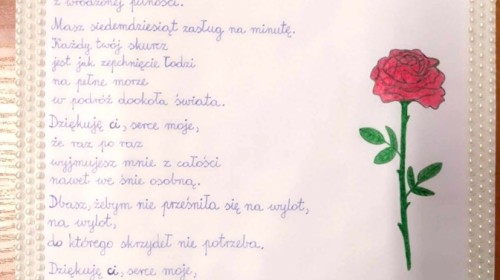 z wrodzonej pilności.
Masz siedemdziesiąt zasług na minutę.
Każdy twój skurcz
jest jak zepchnięcie łodzi
na pełne morze
w podróż dookoła świata.
Dziękuję ci, serce moje,
że raz po raz
wyjmujesz mnie z całości
nawet we śnie osobną.
Dbasz, żebym nie prześniła się na wylot,
na wylot,
do którego skrzydeł nie potrzeba.
Dziękuję ci, serce moje,